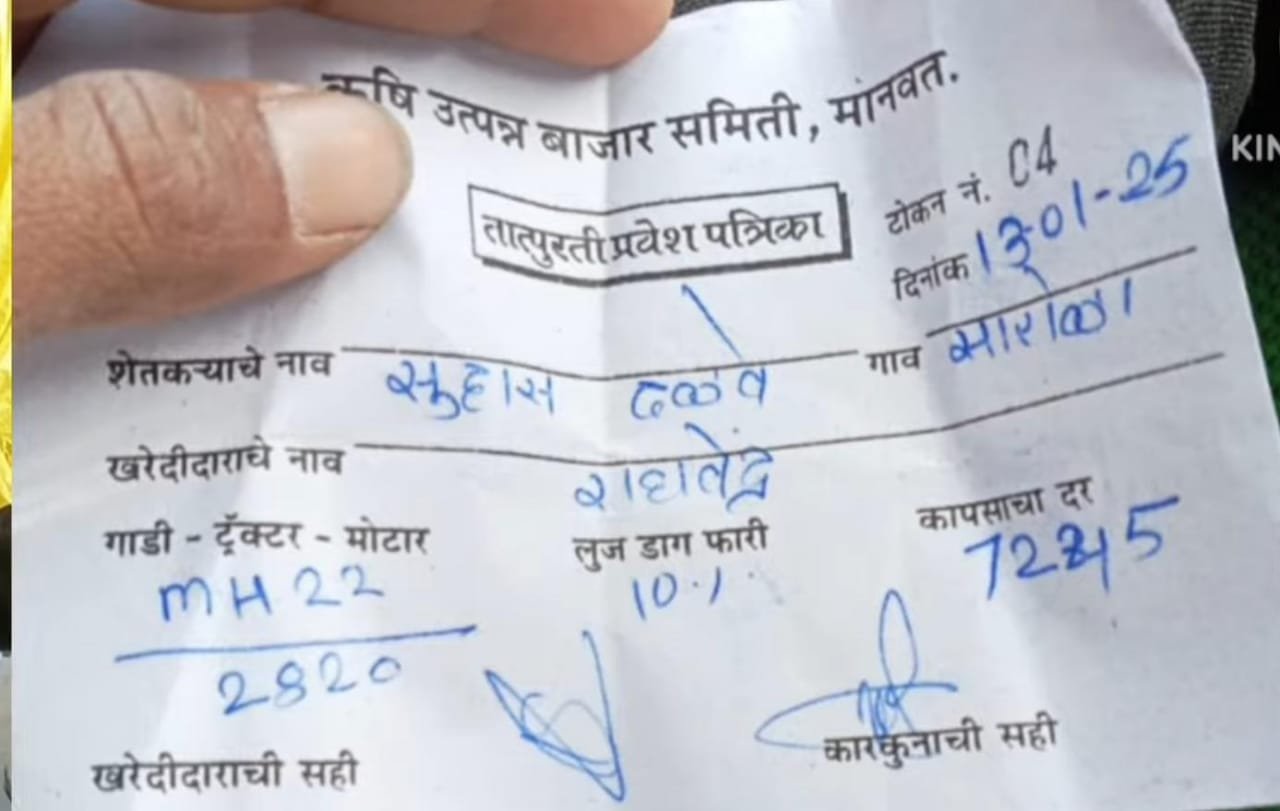 कृषि उत्पन्न बाजार समिती, मानवत.
तात्पुरती प्रवेश पत्रिका
टोकन नं. 04
दिनांक 13-01-25
शेतकऱ्याचे नाव सुहास दळवे गाव
खरेदीदाराचे नाव
गाडी - ट्रॅक्टर - मोटार
MH 22
2820
लुज डाग फारी
10%
कापसाचा दर
खरेदीदाराची सही
कारकुनाची सही
KIN